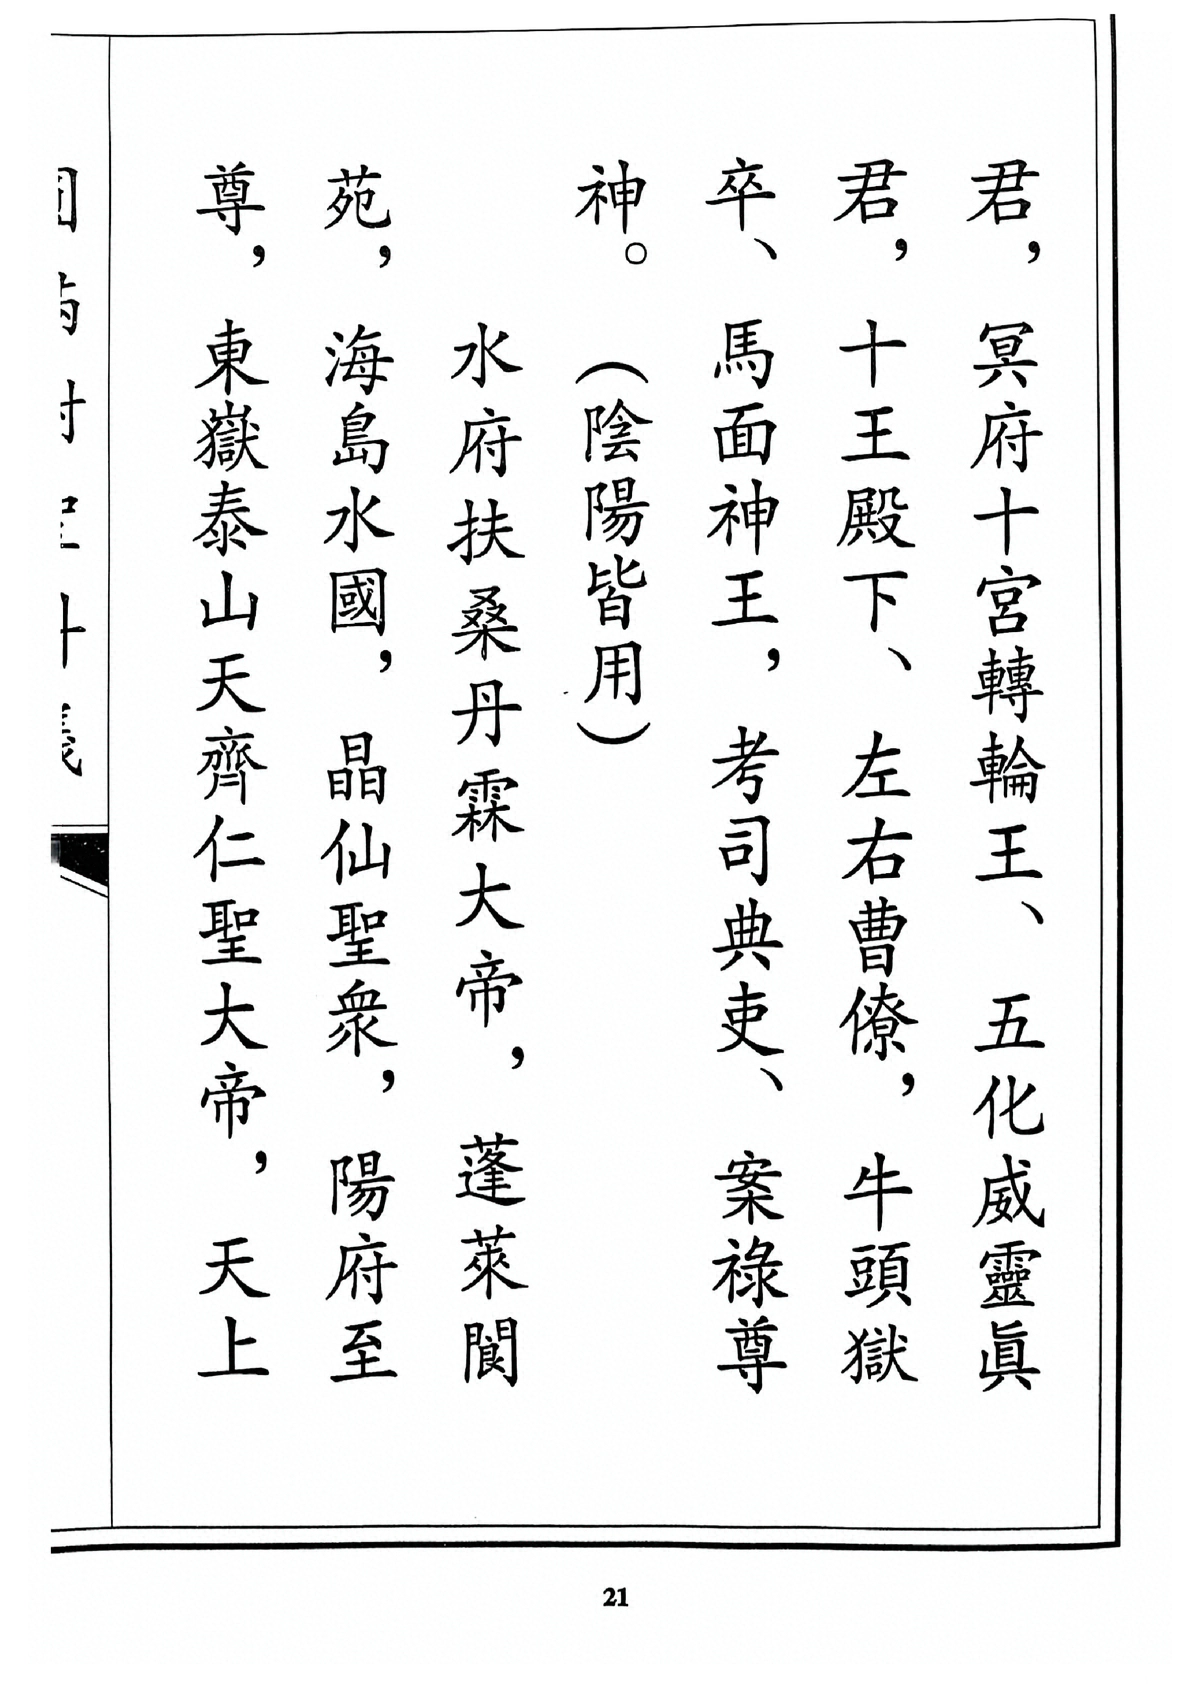 君，冥府十宮轉輪王、五化威靈眞
君，十王殿下、左右曹僚，牛頭獄
卒、馬面神王，考司典吏、案祿尊
神。（陰陽皆用）
水府扶桑丹霖大帝，蓬萊閬
苑，海島水國，晶仙聖衆，陽府至
尊，東嶽泰山天齊仁聖大帝，天上
21